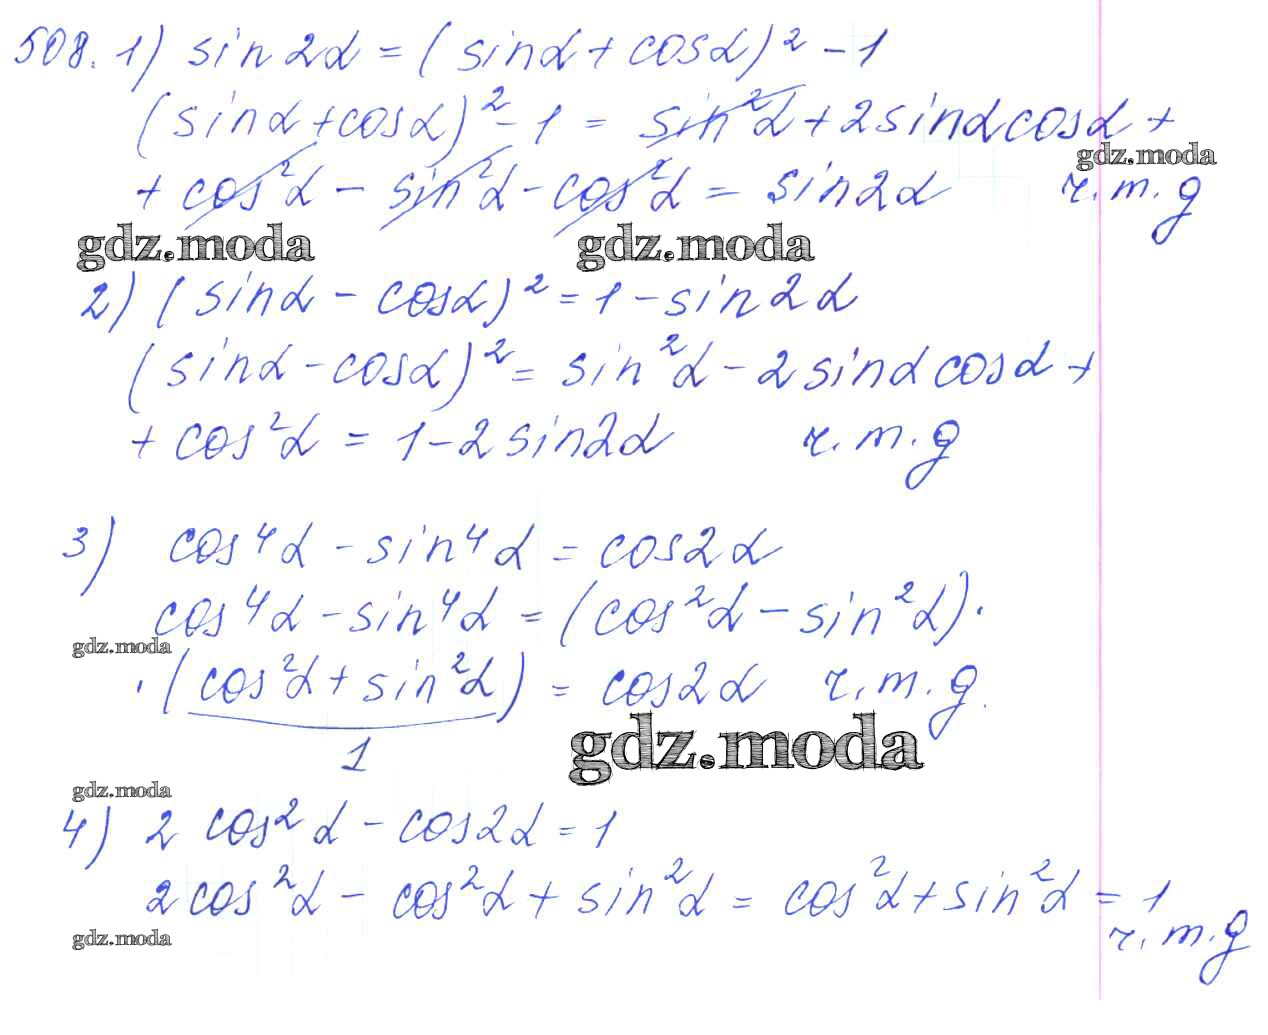 508. 1) sin2α = (sinα + cosα)² - 1
(sinα + cosα)² - 1 = sin²α + 2sinαcosα +
gdz.moda
+ cos²α - sin²α - cos²α = sin2α ч.т.д
gdz.moda gdz.moda
2) (sinα - cosα)² = 1 - sin2α
(sinα - cosα)² = sin²α - 2sinαcosα +
+ cos²α = 1 - 2sin2α ч.т.д
3) cos⁴α - sin⁴α = cos2α
cos⁴α - sin⁴α = (cos²α - sin²α)·
gdz.moda
·(cos²α + sin²α) = cos2α ч.т.д.
1
gdz.moda
gdz.moda
4) 2cos²α - cos2α = 1
2cos²α - cos²α + sin²α = cos²α + sin²α = 1
ч.т.д
gdz.moda